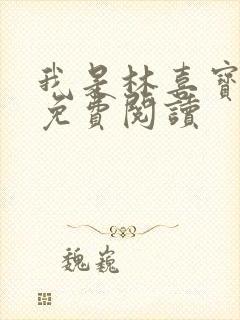 我是林喜寶
免費閱讀
魏巍